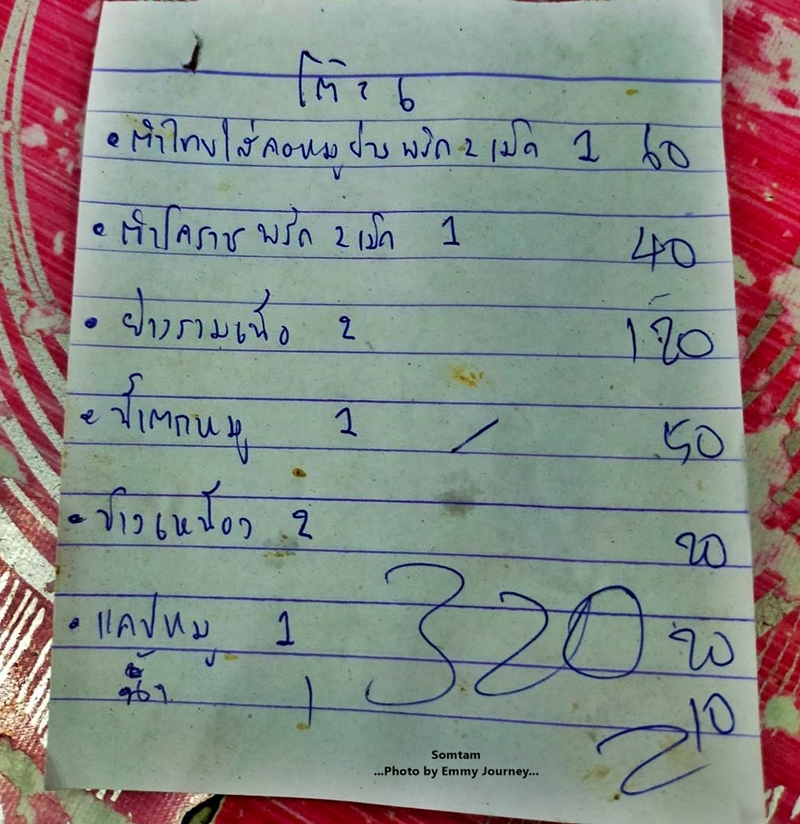 โต๊ะ 6
• ตำไทยใส่คอหมูย่าง พริก 2 เม็ด 1 60
• ตำโคราช พริก 2 เม็ด 1 40
• ย่างรวมเนื้อ 2 120
• 1 50
• ข้าวเหนียว 2 20
• แคปหมู 1 20
320
น้ำ 1 10
2
Somtam
...Photo by Emmy Journey...